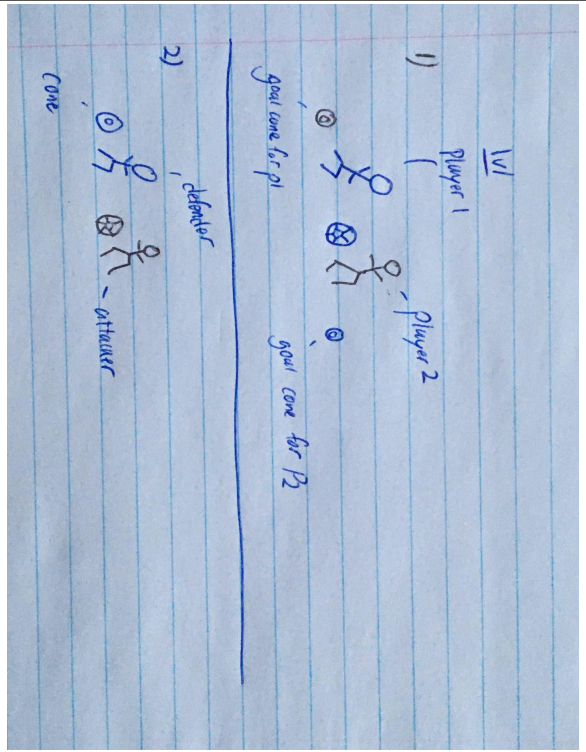 1v1
1)
Player 1
Player 2
goal cone for p1
goal cone for P2
2)
defender
attacker
Cone